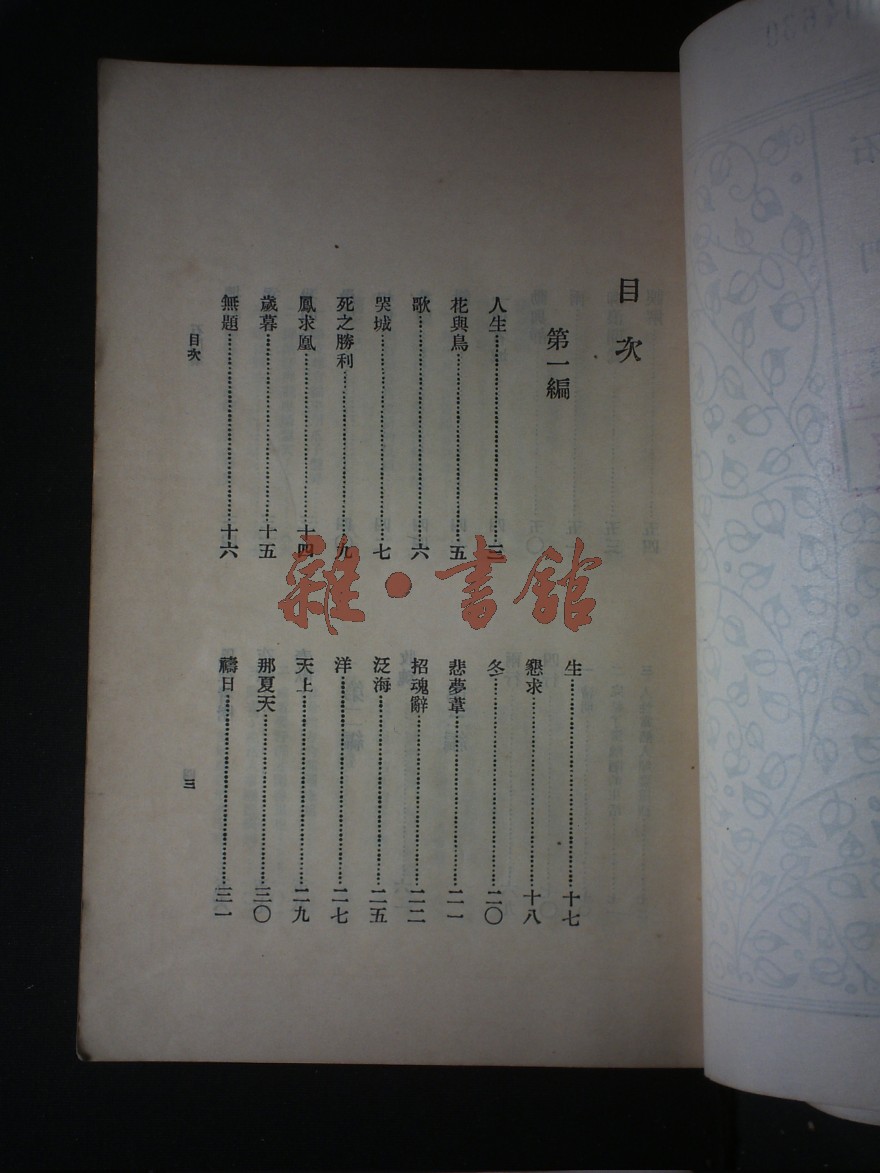 目次
第一編
人生……三
花與鳥……五
歌……六
哭城……七
死之勝利……九
鳳求凰……十四
歲暮……十五
無題……十六
生……十七
懇求……十八
冬……二〇
悲夢葦……二一
招魂辭……二二
泛海……二五
洋……二七
天上……二九
那夏天……三〇
禱日……三一
目次
三
雜·書館